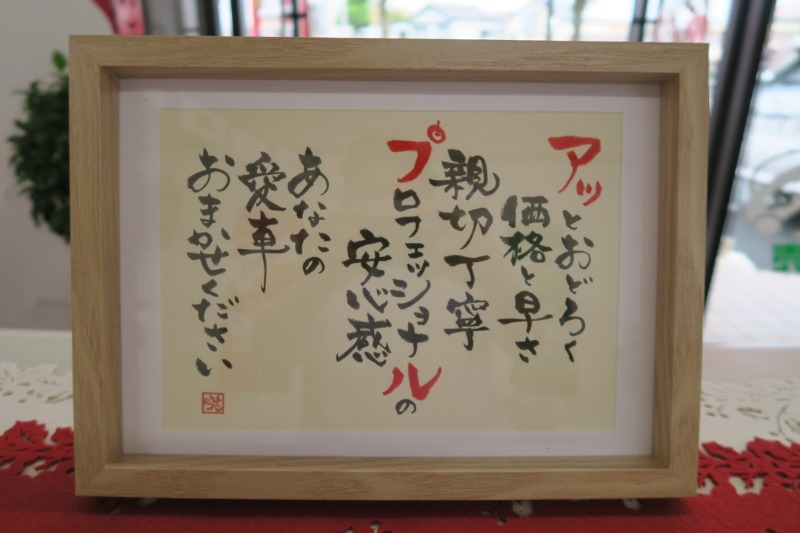 アッとおどろく
価格と早さ
親切丁寧
プロフェッショナルの
安心感
あなたの
愛車
おまかせください